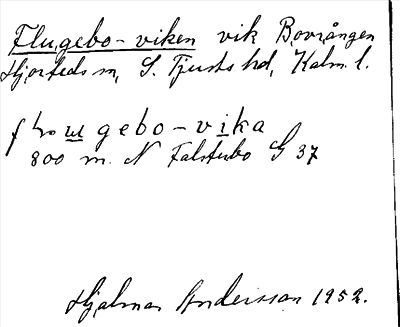 Flugebo-viken vik Bovrången
Hjorteds sn, S. Tjusts hd, Kalm. l.
gebo-vika
800 m. N Falstebo G 37
Hjalmar Andersson 1952.